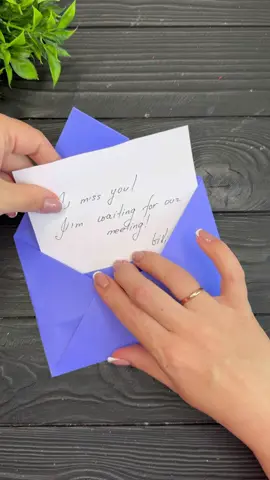 I miss you!
I'm waiting for our
meeting!